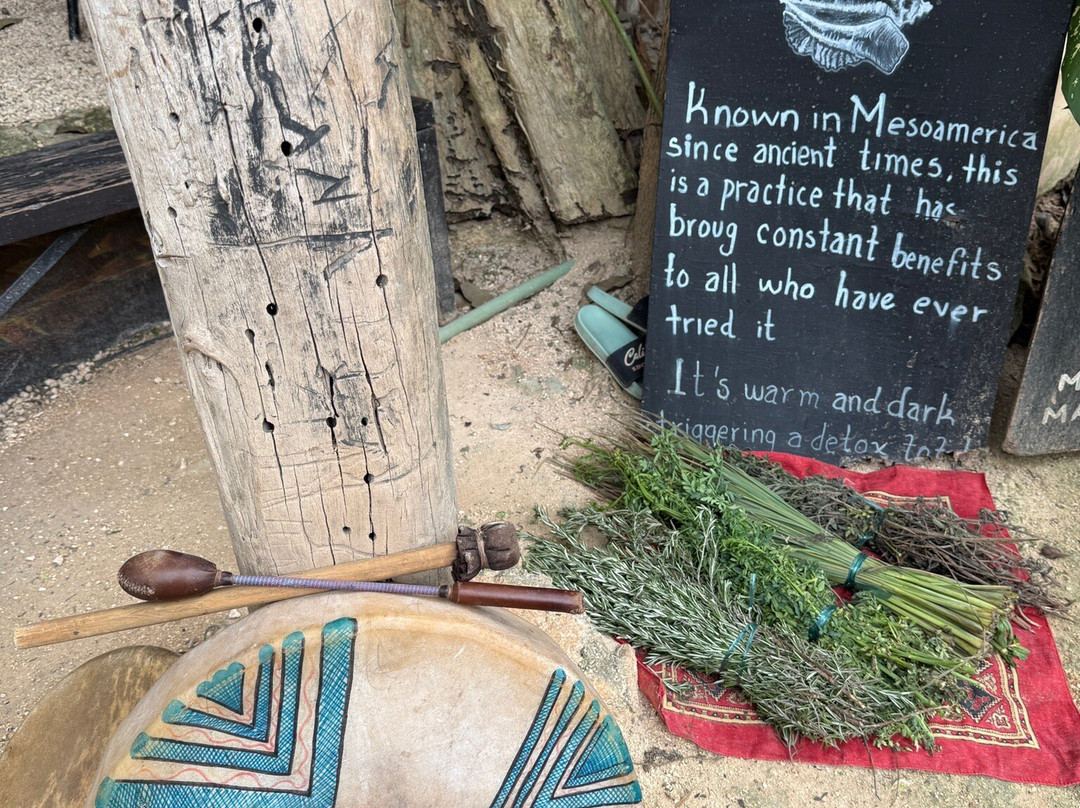 Known in Mesoamerica
since ancient times, this
is a practice that has
broug constant benefits
to all who have ever
tried it
It's warm and dark
triggering a detox
M
MA